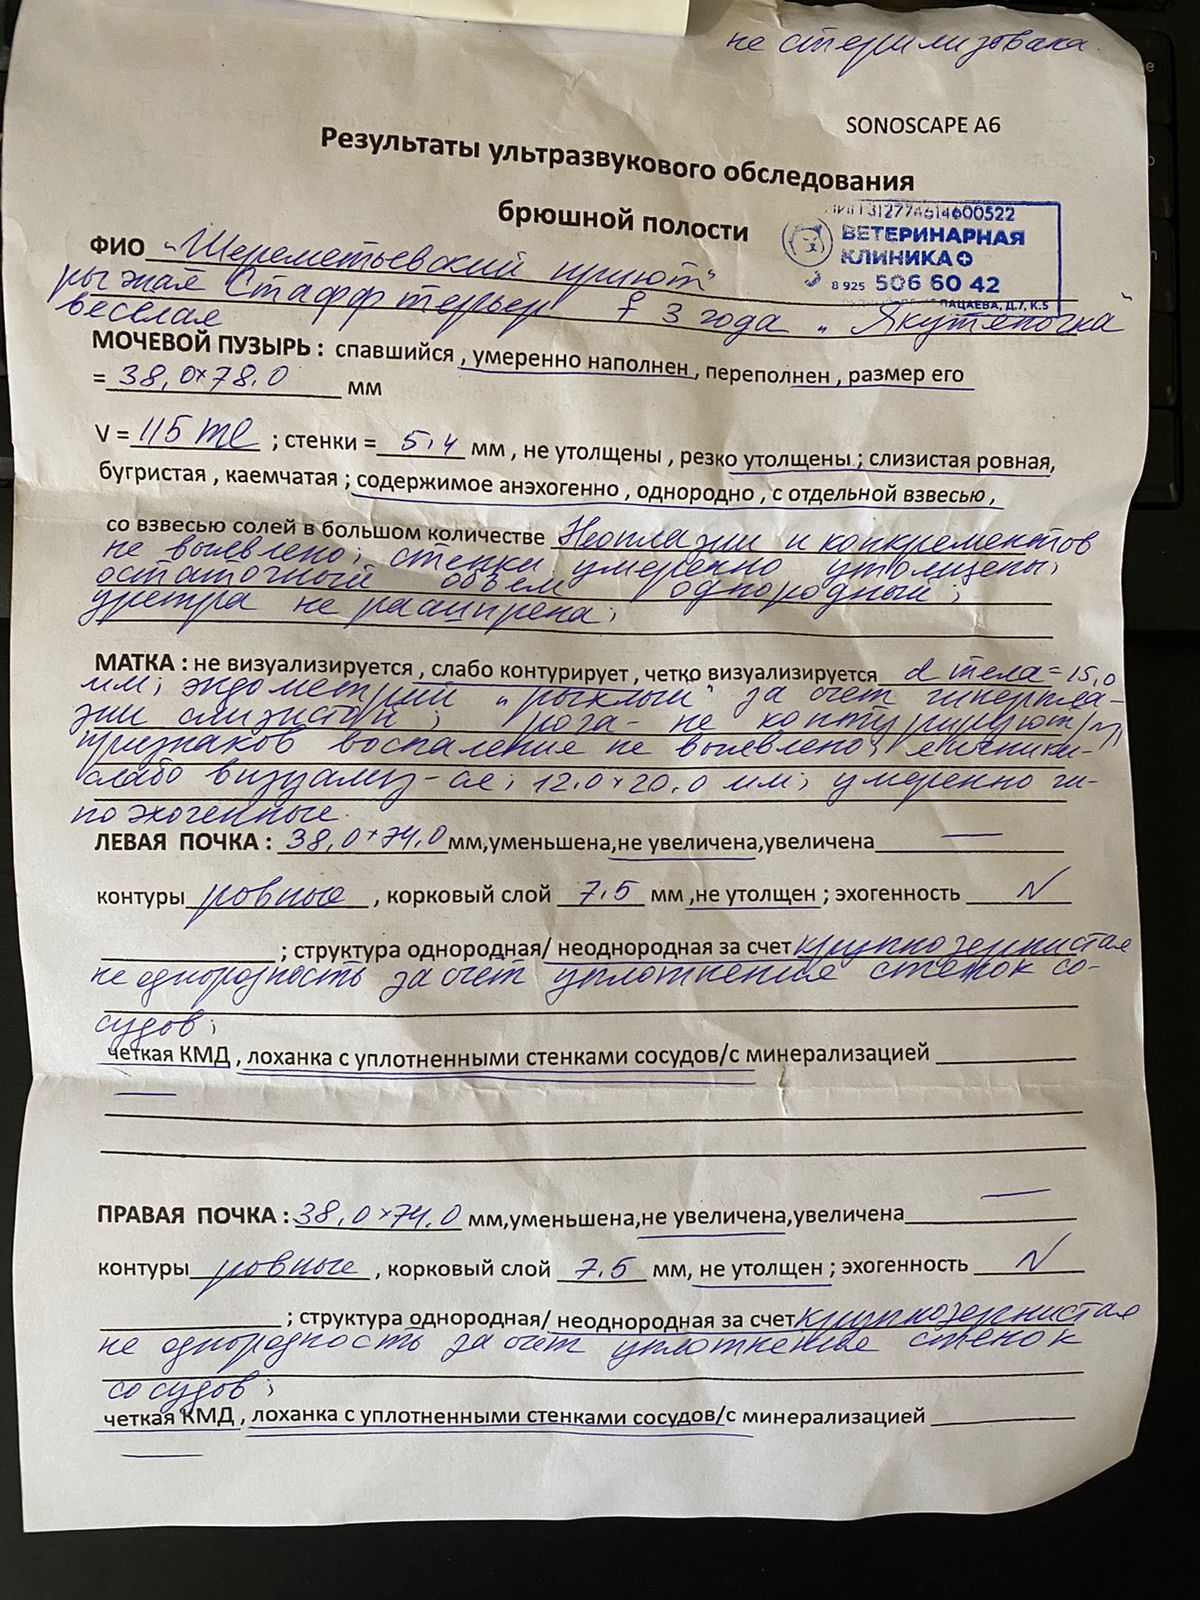 не стерилизована
SONOSCAPE A6
Результаты ультразвукового обследования
брюшной полости
312774614600522
ВЕТЕРИНАРНАЯ
КЛИНИКА
8 925 506 60 42
ПАЦАЕВА, Д.7, К.5
ФИО "Шереметьевский приют"
рыжая Стафф терьер f 3 года "Якутяночка"
веселая
МОЧЕВОЙ ПУЗЫРЬ : спавшийся , умеренно наполнен , переполнен , размер его
= 38,0×78.0 мм
V = 115 ml ; стенки = 5,4 мм , не утолщены , резко утолщены ; слизистая ровная,
бугристая , каемчатая ; содержимое анэхогенно , однородно , с отдельной взвесью ,
со взвесью солей в большом количестве Неоплазии и конкрементов
не выявлено; стенки умеренно утолщены;
остаточный объем однородный;
уретра не расширена;
МАТКА : не визуализируется , слабо контурирует , четко визуализируется d тела = 15,0
мм; эндометрий "рыхлый" за счет гиперпла-
зии слизистой; рога - не контурируют;
признаков воспаление не выявлено; яичники -
слабо визуализ-ся; 12.0×20.0 мм; умеренно ги-
поэхогенные.
ЛЕВАЯ ПОЧКА : 38,0×74.0 мм,уменьшена,не увеличена,увеличена —
контуры ровные , корковый слой 7.5 мм ,не утолщен ; эхогенность N
; структура однородная/ неоднородная за счет крупнозернистая
не однородность за счет уплотнения стенок со-
судов;
четкая КМД , лоханка с уплотненными стенками сосудов/с минерализацией
—
ПРАВАЯ ПОЧКА : 38,0×74.0 мм,уменьшена,не увеличена,увеличена —
контуры ровные , корковый слой 7.5 мм, не утолщен ; эхогенность N
; структура однородная/ неоднородная за счет крупнозернистая
не однородность за счёт уплотнение стенок
сосудов;
четкая КМД , лоханка с уплотненными стенками сосудов/с минерализацией
—